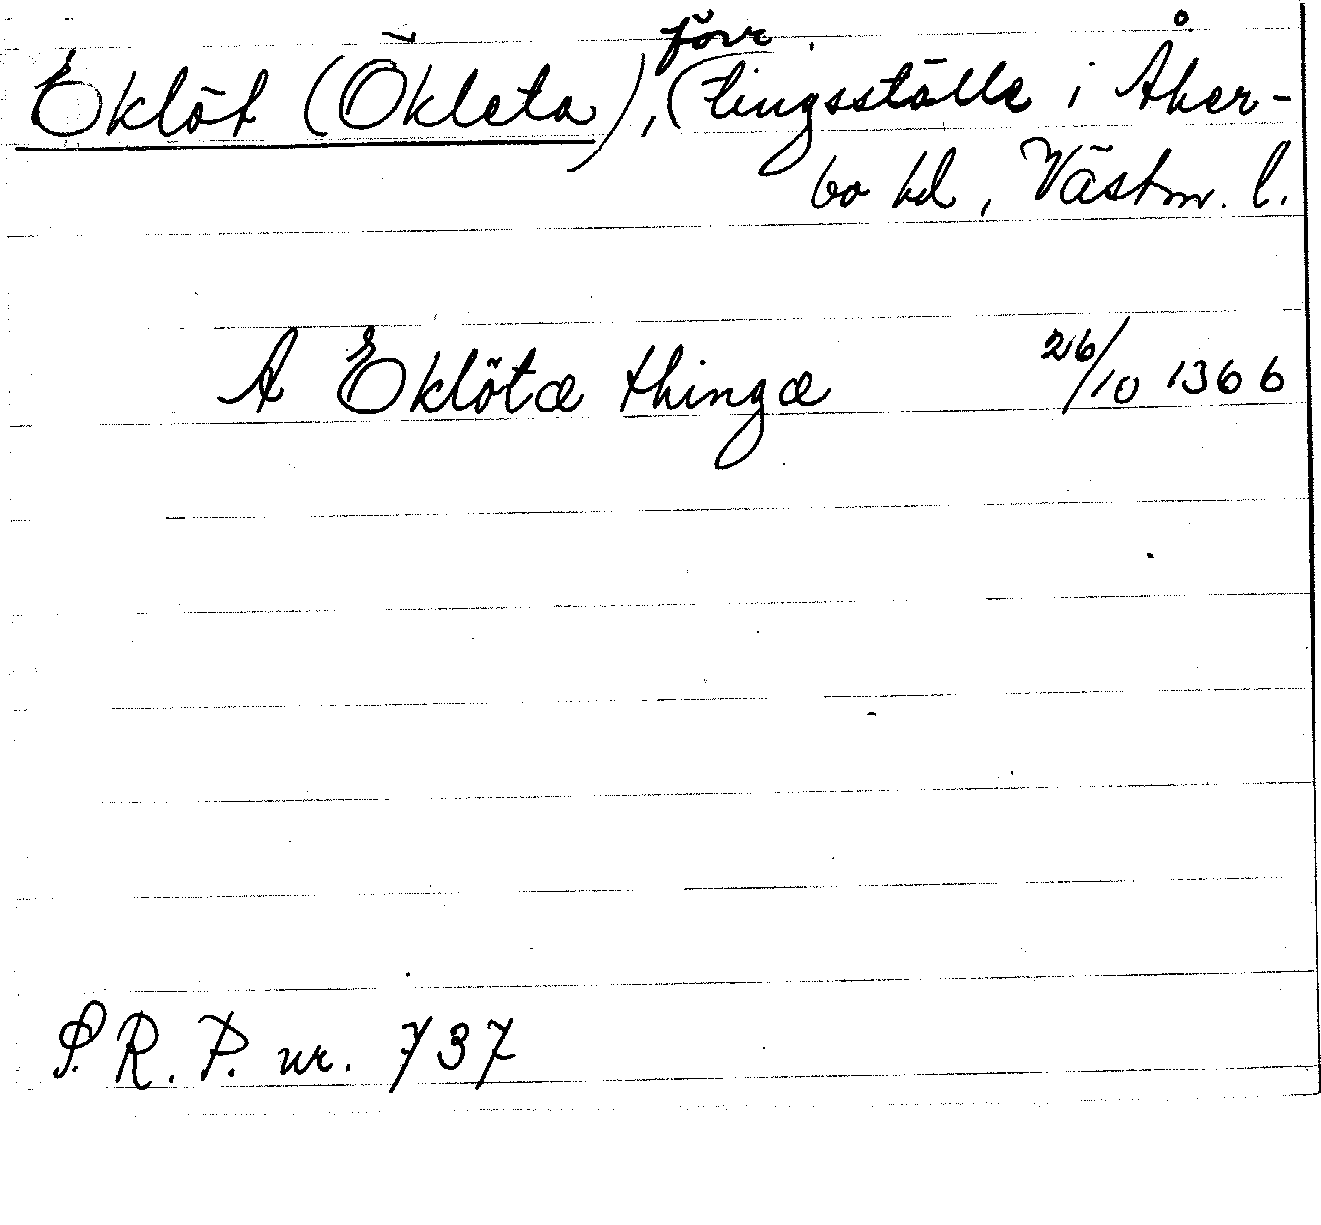 Eklöt (Ökleta), förr tingsställe i Åker-
bo hd, Västm. l.
A Eklötæ thingæ 26/10 1366
S.R.P. nr. 737